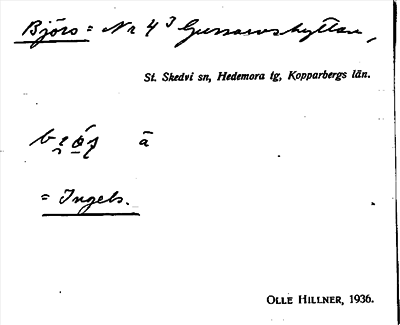 Björs = Nr 4³ Gussarvshyttan,
St. Skedvi sn, Hedemora tg, Kopparbergs län.
ä
= Ingels.
OLLE HILLNER, 1936.